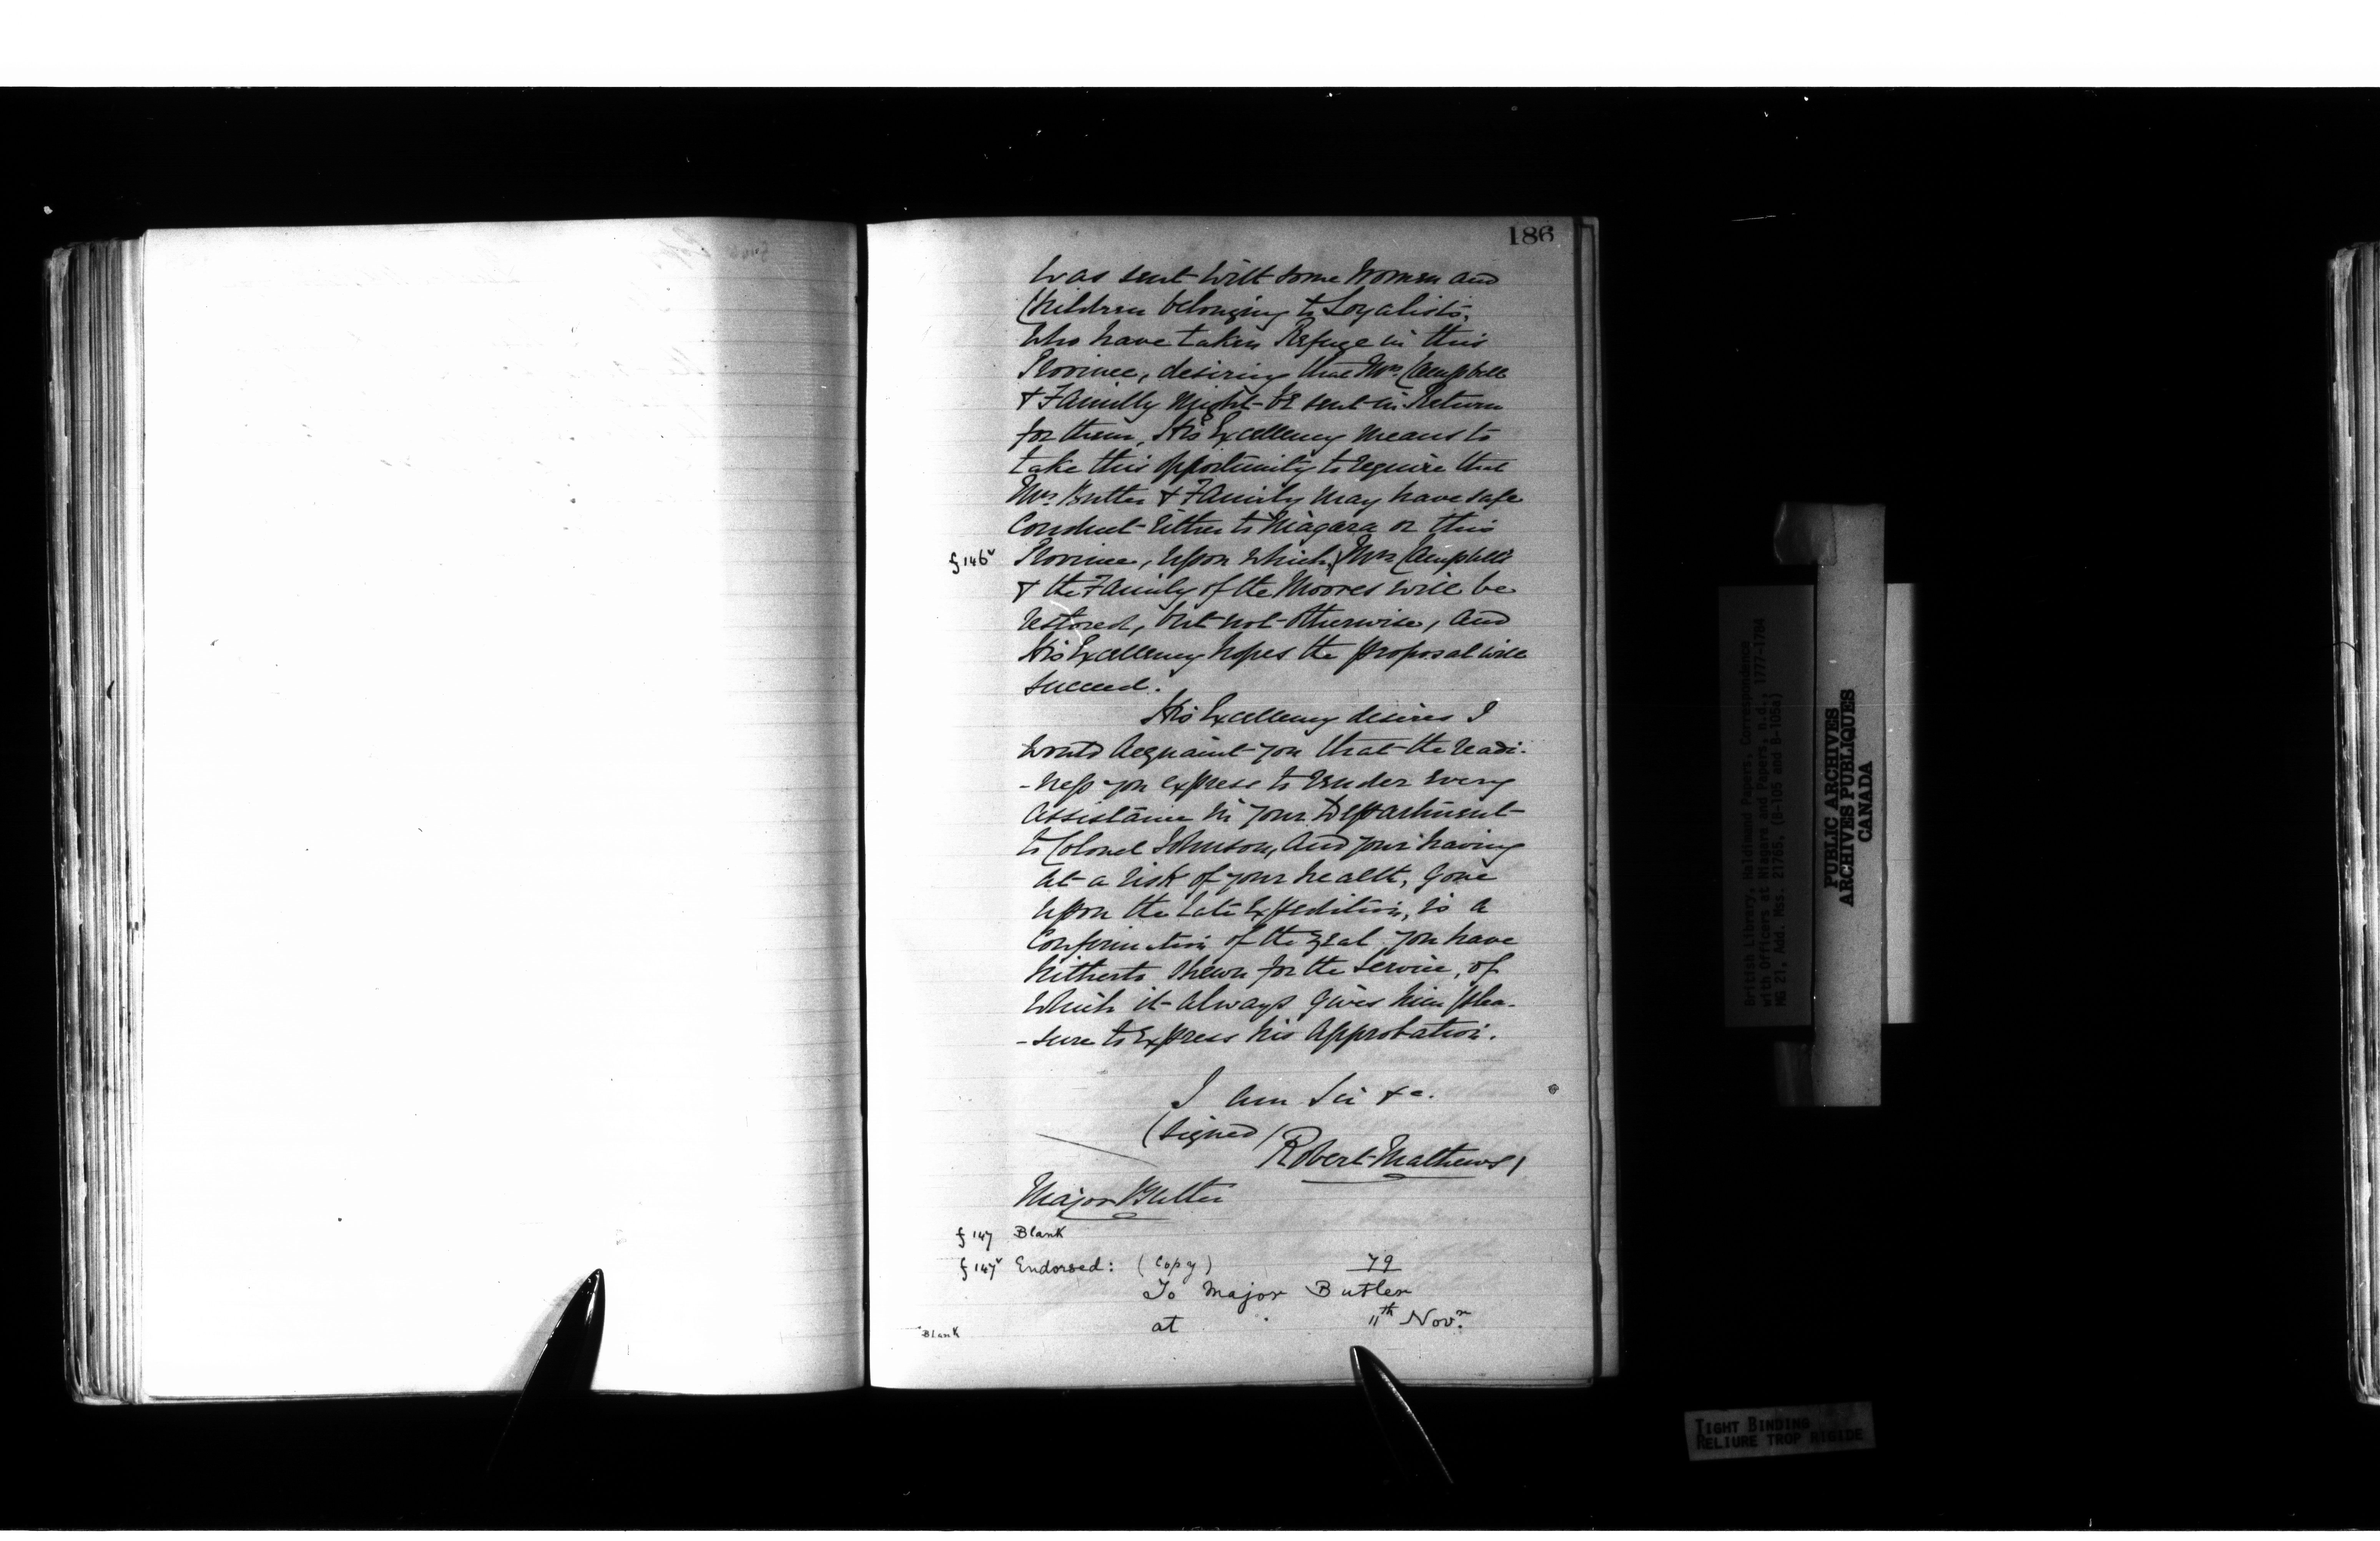 186
was sent with some Women and
Children belonging to Loyalists,
who have taken Refuge in this
Province, desiring that Mrs. Campbell
& Familly might be sent in Return
for them, His Excellency means to
take this opportunity to require that
Mrs. Butler & Family may have safe
Conduct Either to Niagara or this
f 146v Province, upon which Mrs Campbell's
& the Family of the Moores will be
restored, but not otherwise, and
His Excellency hopes the proposal will
succeed.
His Excellency desires I
would acquaint you that the readi-
-ness you express to render every
assistance in your Department
to Colonel Johnson, and your having
at a risk of your health, gone
upon the late Expedition, is a
Confirmation of the zeal you have
hitherto shewn for the Service, of
which it always gives him plea-
-sure to Express his approbation.
I am Sir &c.
(signed)
Robert Mathews,
Major Butler
f 147 Blank
f 147v Endorsed: (Copy) 79
To Major Butler
at 11th Novr.
Blank
British Library, Haldimand Papers, Correspondence
with Officers at Niagara and Papers, n.d., 1777-1784
MG 21, Add. Mss. 21765, (B-105 and B-105a)
PUBLIC ARCHIVES
ARCHIVES PUBLIQUES
CANADA
TIGHT BINDING
RELIURE TROP RIGIDE